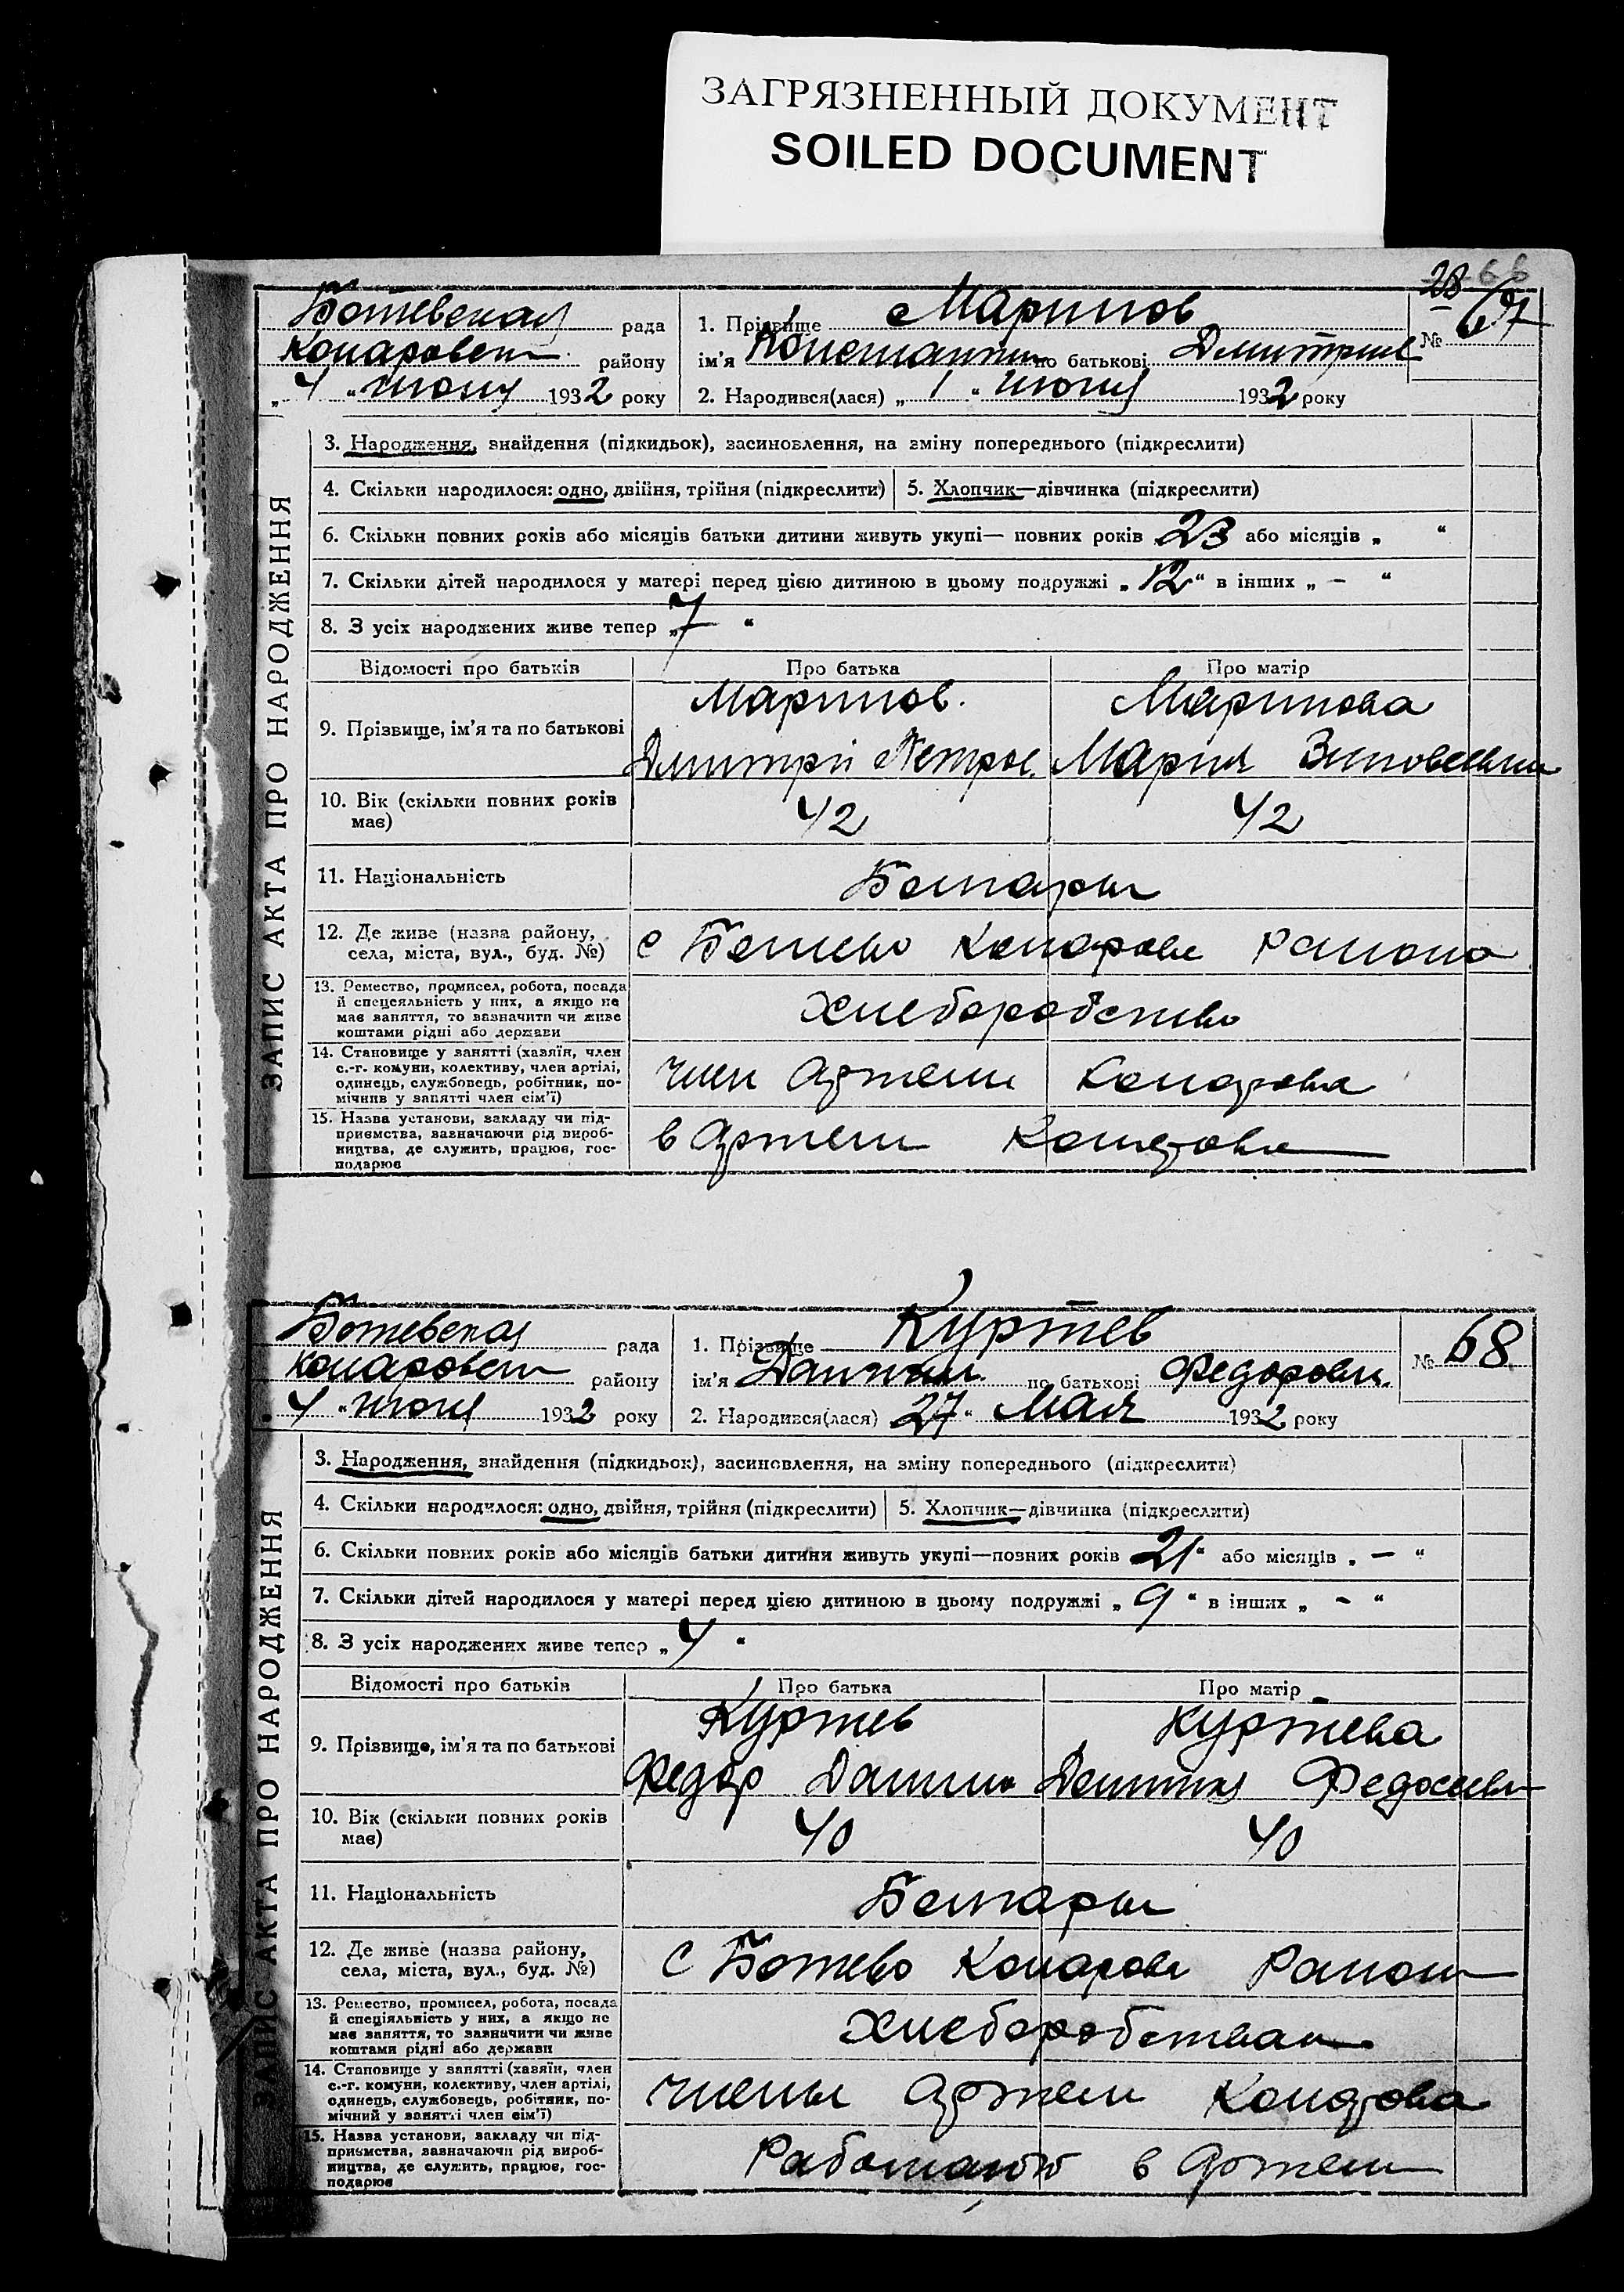 ЗАГРЯЗНЕННЫЙ ДОКУМЕНТ
SOILED DOCUMENT
28 66
Ботевская рада
Коларовск района
"4" июня 1932 року
1. Прізвище Маринов
ім'я Константин по батькові Дмитриев
2. Народився(лася) "1" июня 1932 року
№ 67
ЗАПИС АКТА ПРО НАРОДЖЕННЯ
3. Народження, знайдення (підкидьок), засиновлення, на зміну попереднього (підкреслити)
4. Скільки народилося: одно, двійня, трійня (підкреслити)
5. Хлопчик—дівчинка (підкреслити)
6. Скільки повних років або місяців батьки дитини живуть укупі— повних років 23 або місяців „ “
7. Скільки дітей народилося у матері перед цією дитиною в цьому подружжі „12“ в інших „ – “
8. З усіх народжених живе тепер „7“
Відомості про батьків Про батька Про матір
9. Прізвище, ім'я та по батькові
Маринов. Маринова
Дмитрий Петров. Мария Зиновеевна
10. Вік (скільки повних років має)
42 42
11. Національність
Болгары
12. Де живе (назва району,
села, міста, вул., буд. №)
с Ботево Коларов Района
13. Ремество, промисел, робота, посада
й спеціяльність у них, а якщо не
має заняття, то зазначити чи живе
коштами рідні або держави
Хлеборобство
14. Становище у занятті (хазяїн, член
с.-г. комуни, колективу, член артілі,
одинець, службовець, робітник, по-
мічнив у занятті член сім'ї)
член Артели Коларова
15. Назва установи, закладу чи під-
приємства, зазначаючи рід вироб-
ництва, де служить, працює, гос-
подарює
в Артели Коларова
Ботевская рада
Коларовск району
"4" июня 1932 року
1. Прізвище Куртев
ім'я Даниил по батькові Федорович.
2. Народився(лася) 27 " Мая 1932 року
№ 68
ЗАПИС АКТА ПРО НАРОДЖЕННЯ
3. Народження, знайдення (підкидьок), засиновлення, на зміну попереднього (підкреслити)
4. Скільки народилося: одно, двійня, трійня (підкреслити)
5. Хлопчик—дівчинка (підкреслити)
6. Скільки повних років або місяців батьки дитини живуть укупі—повних років 21 “ або місяців „ – “
7. Скільки дітей народилося у матері перед цією дитиною в цьому подружжі „ 9 “ в інших „ – “
8. З усіх народжених живе тепер „4“
Відомості про батьків Про батька Про матір
9. Прізвище, ім'я та по батькові
Куртев Куртева
Федор Данил
10. Вік (скільки повних років
має)
40 40
11. Національність
Болгары
12. Де живе (назва району,
села, міста, вул., буд. №)
С Ботево Коларов Района
13. Ремество, промисел, робота, посада
й спеціяльність у них, а якщо не
має заняття, то зазначити чи живе
коштами рідні або держави
Хлеборобством
14. Становище у занятті (хазяїн, член
с.-г. комуни, колективу, член артілі,
одинець, службовець, робітник, по-
мічний у занятті член сім'ї)
члены Артели Коларова
15. Назва установи, закладу чи під-
приємства, зазначаючи рід вироб-
ництва, де служить, працює, гос-
подарює
Работают в Артели